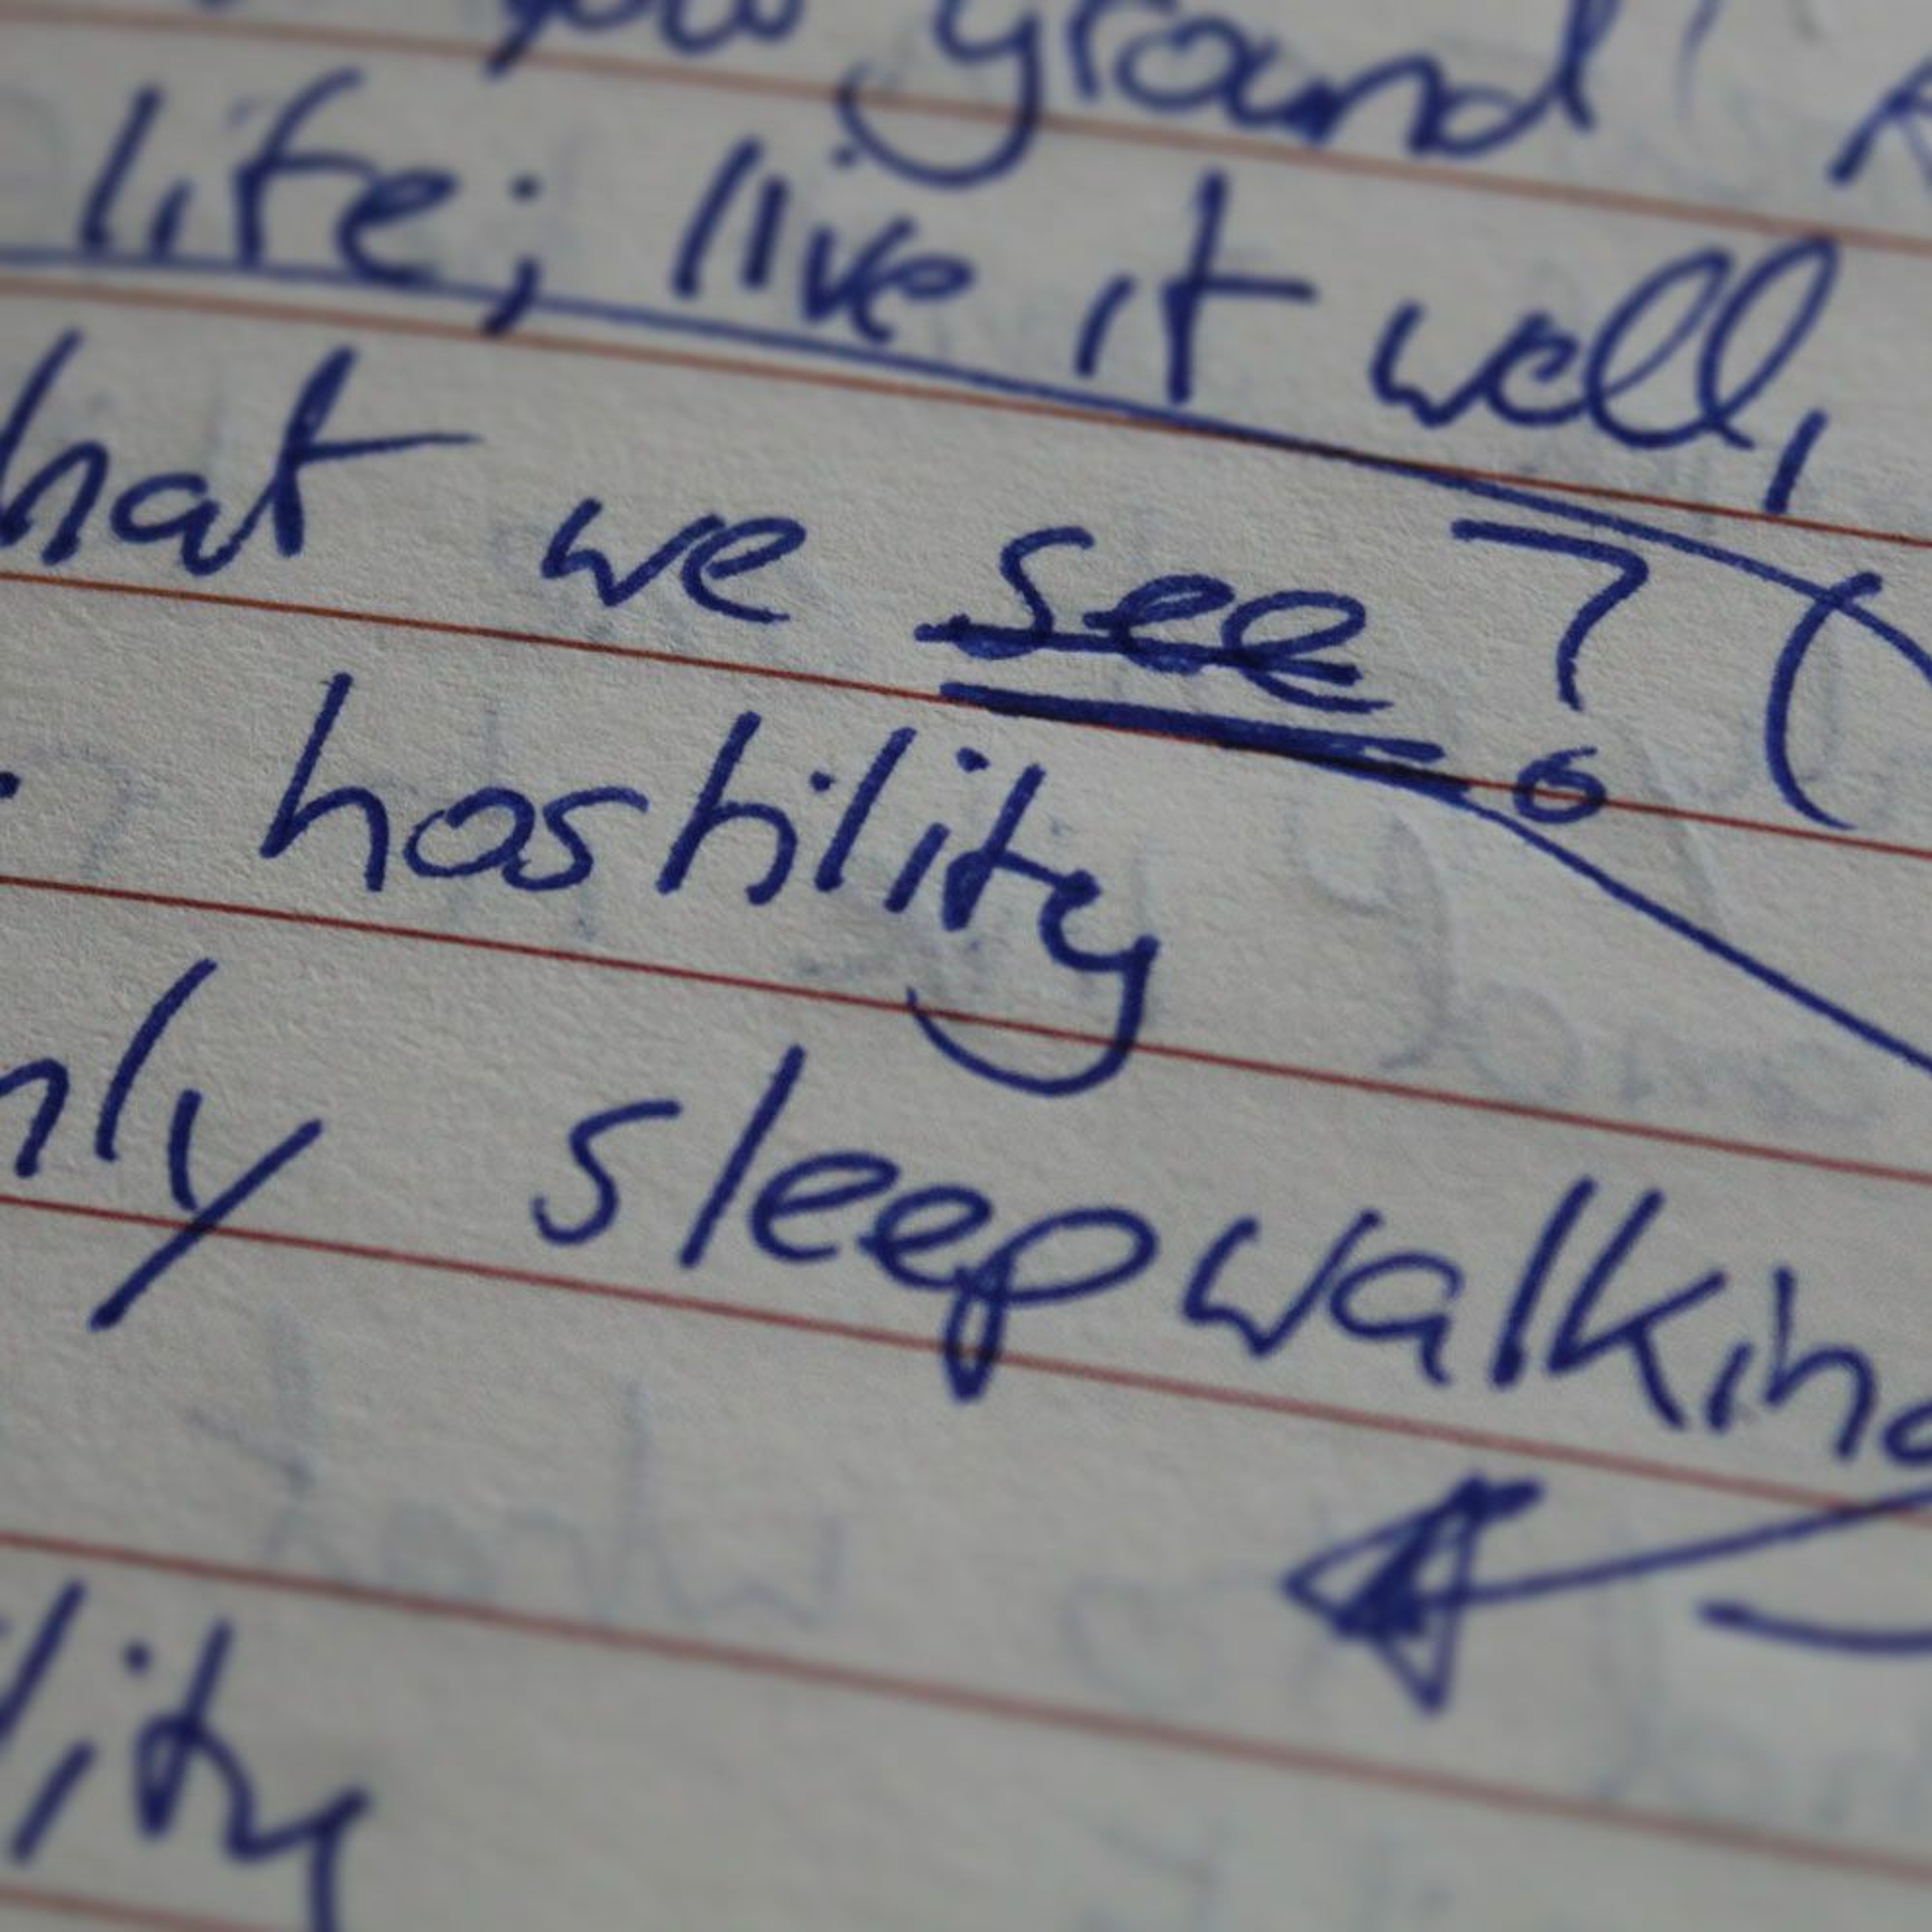 ground
life; live it well,
hat we see? (
hostility
nly sleepwalking
lity